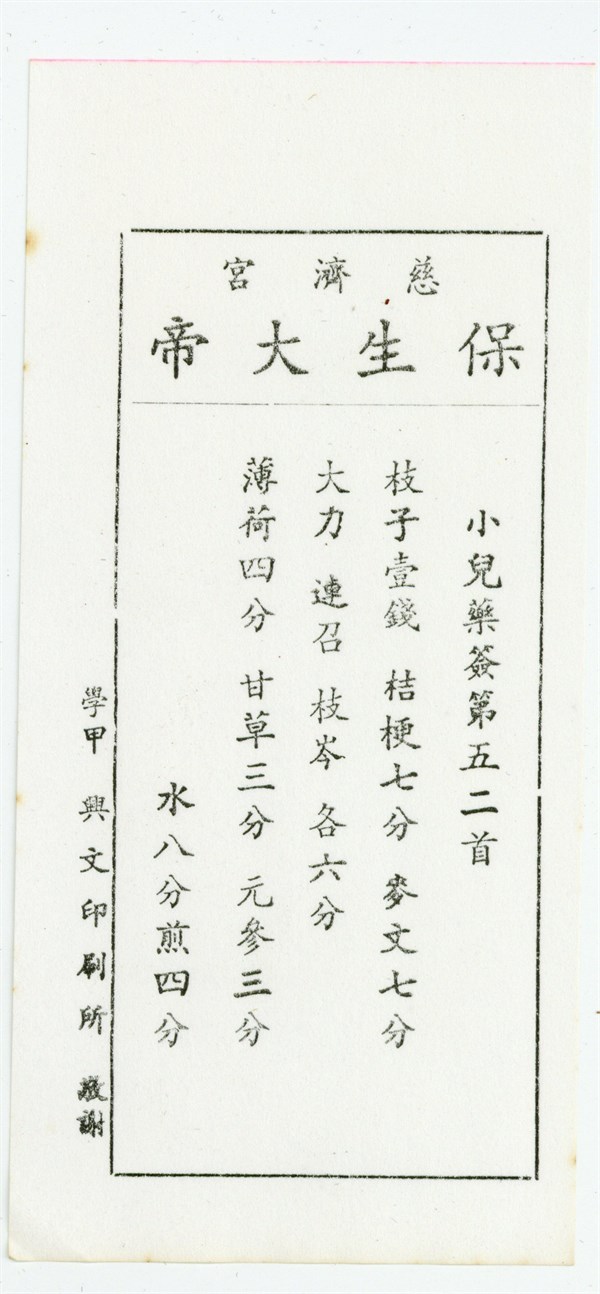 慈濟宮
保生大帝
小兒藥簽第五二首
枝子壹錢 桔梗七分 麥文七分
大力 連召 枝岑 各六分
薄荷四分 甘草三分 元參三分
水八分煎四分
學甲 興文印刷所 敬謝